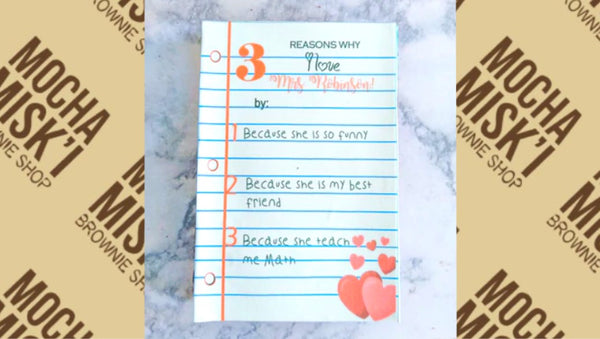 BROWNIE SHOP
MOCHA
MISK'I
BROWNIE SHOP
MOCHA
MISK'I
3 REASONS WHY
I love
Mrs Robinson!
by:
1 Because she is so funny
2 Because she is my best
friend
3 Because she teach
me Math
MOCHA
MISK'I
BROWNIE SHOP
MOCHA
MISK'I